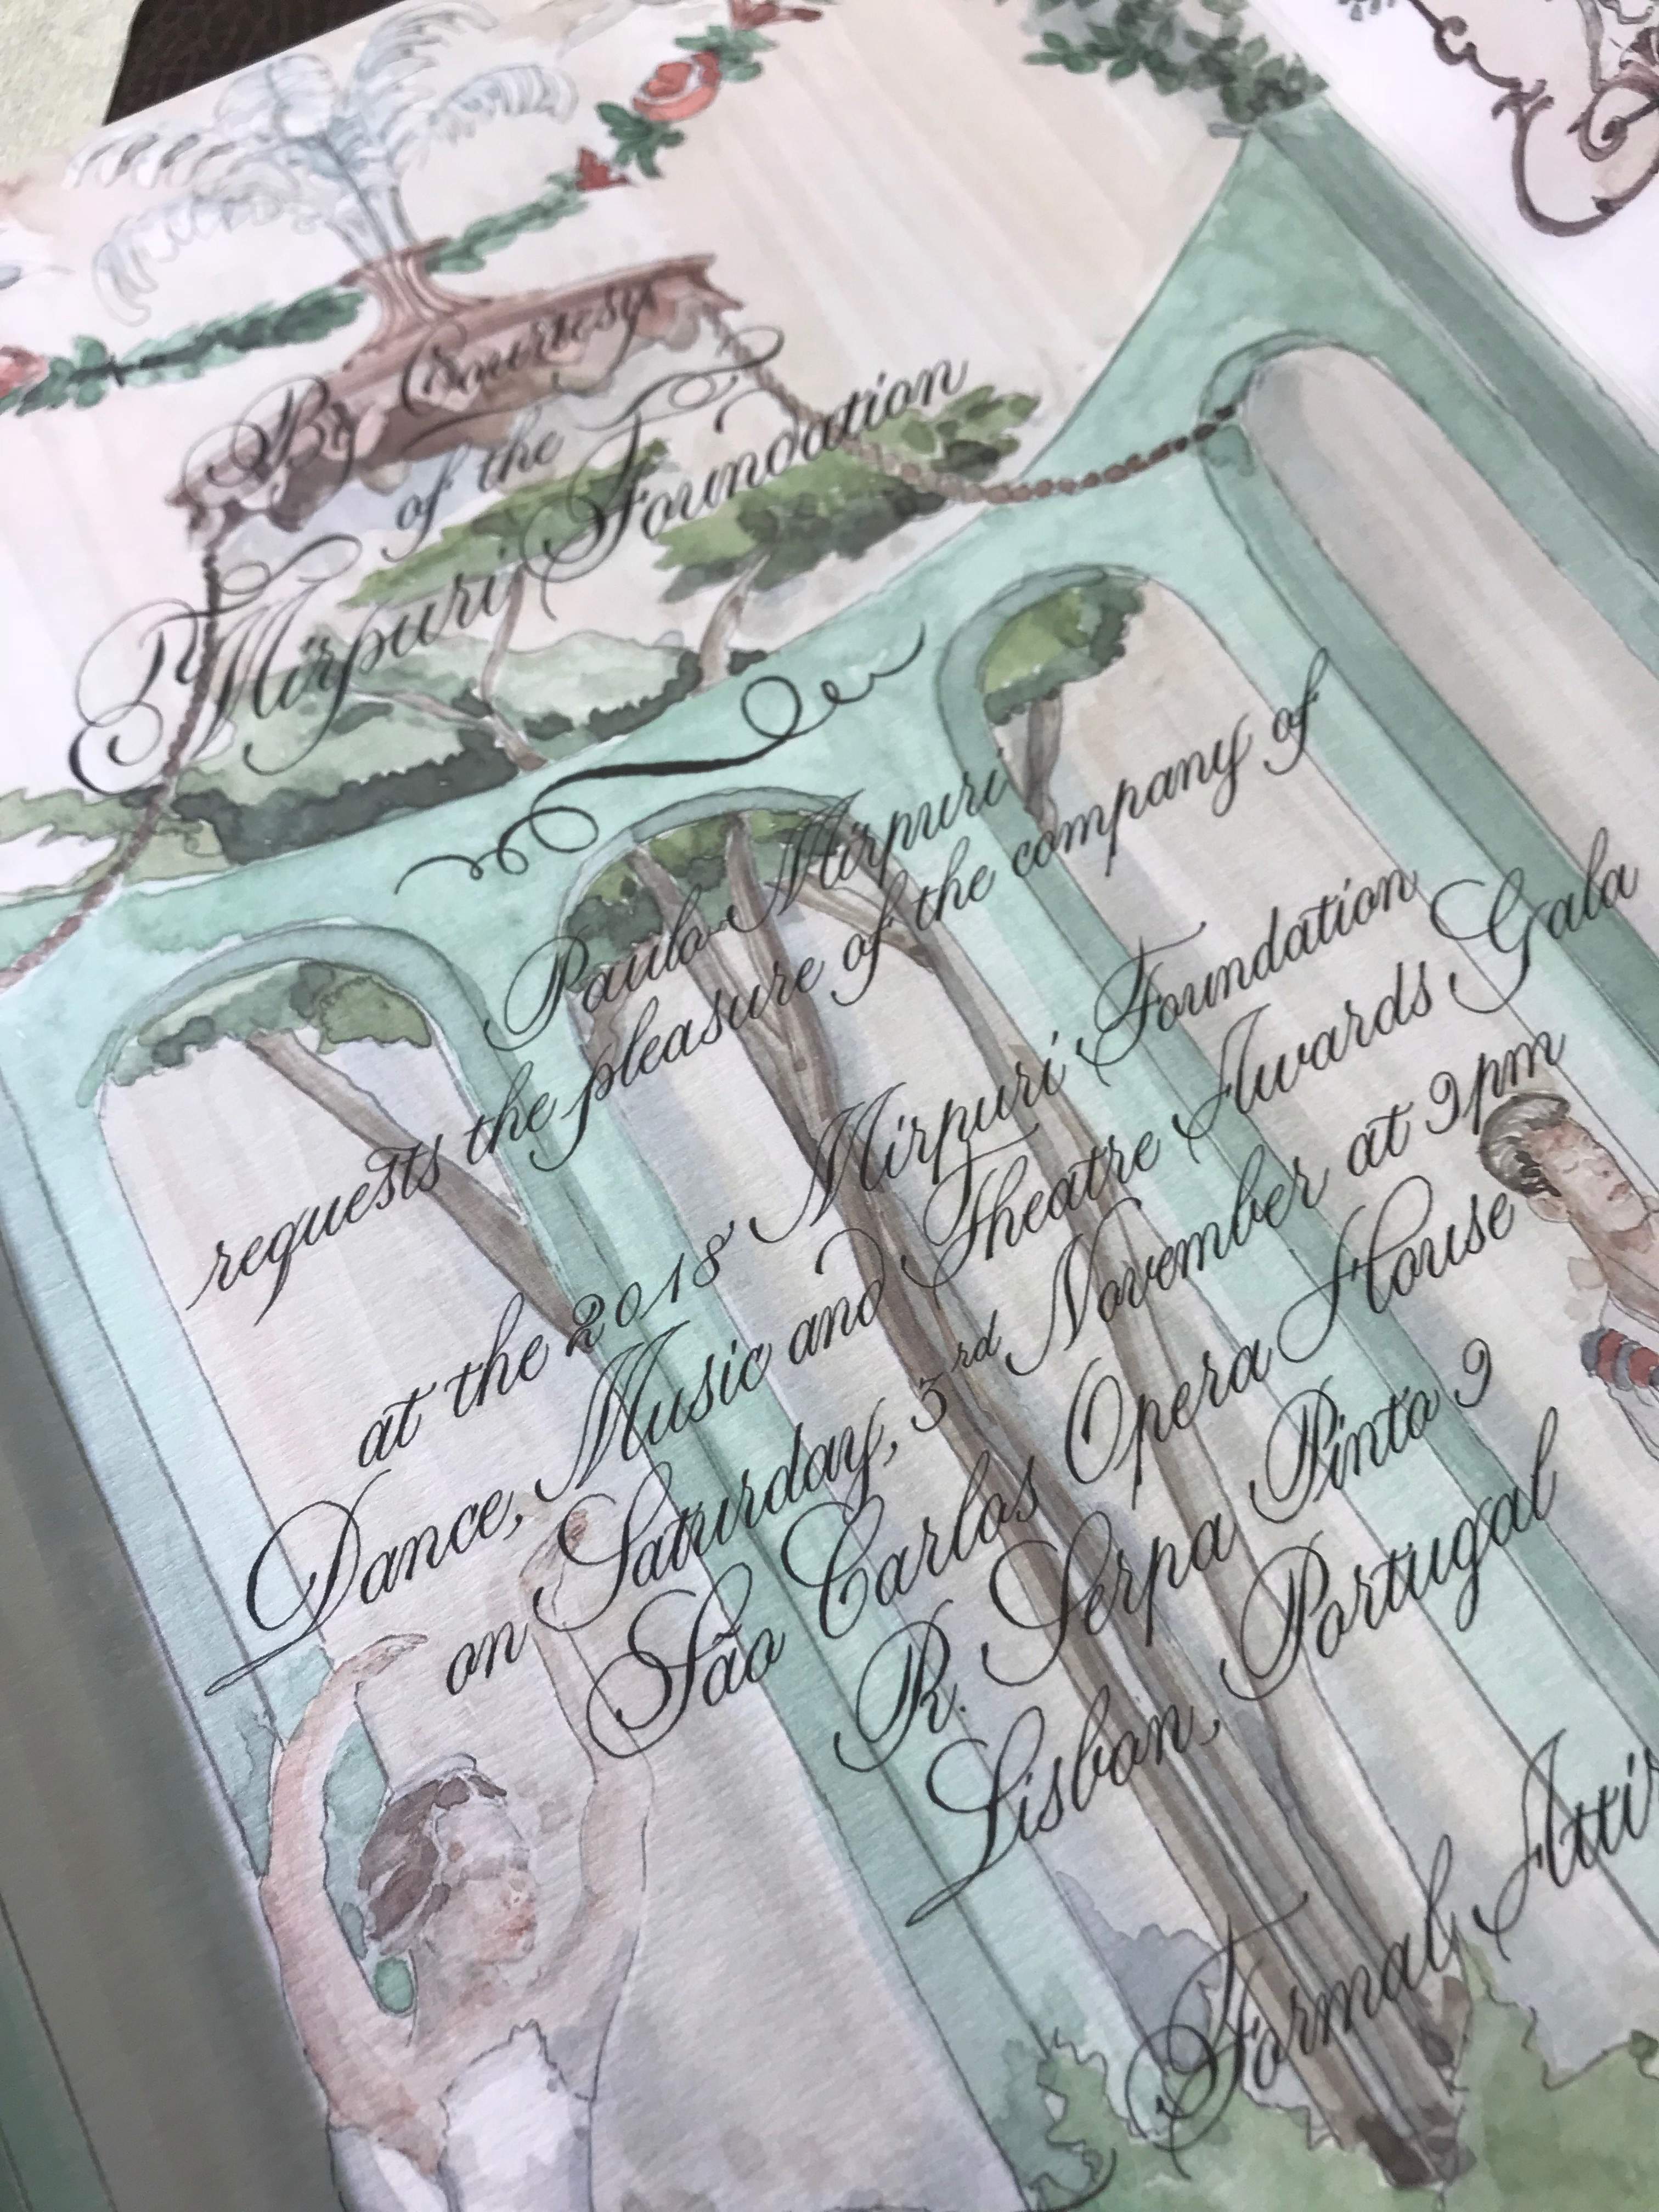 By Courtesy
of the
Mirpuri Foundation
Paulo Mirpuri
requests the pleasure of the company of
at the 2018 Mirpuri Foundation
Dance, Music and Theatre Awards Gala
on Saturday, 3rd November at 9pm
São Carlos Opera House
R. Serpa Pinto 9
Lisbon, Portugal
Formal Atti